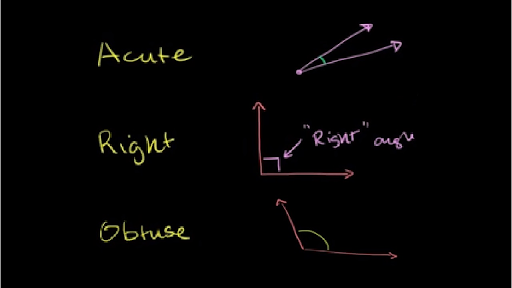 Acute
Right
"Right" angle
Obtuse